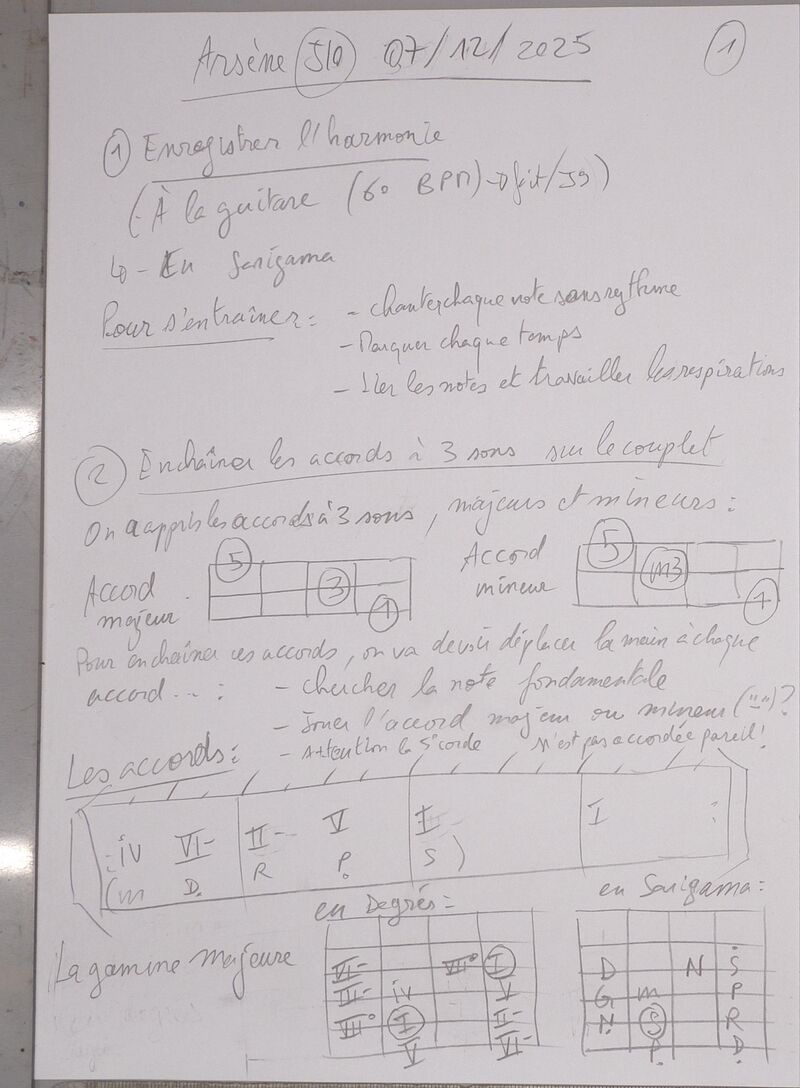 Arsène S10 07/12/2025
1
1 Enregistrer l'harmonie
(- À la guitare (60 BPM)
- En Sarigama
Pour s'entraîner : - chanter chaque note sans rythme
- Marquer chaque temps
- Lier les notes et travailler les respirations
2 Enchaîner les accords à 3 sons sur le couplet
On a appris les accords à 3 sons, majeurs et mineurs :
Accord majeur
5
3
1
Accord mineur
5
m3
1
Pour enchaîner ces accords, on va devoir déplacer la main à chaque
accord... : - Chercher la note fondamentale
- Jouer l'accord majeur ou mineur ("-")?
- Attention la 5e corde n'est pas accordée pareil!
Les accords :
: IV VI- II- V I I :
(m D. R P. S )
La gamme Majeure
en Degrés :
VI- VII° I
III- IV V
VII° I II-
V VI-
en Sarigama :
D N Ṡ
G m P
Ṇ S R
P. D.